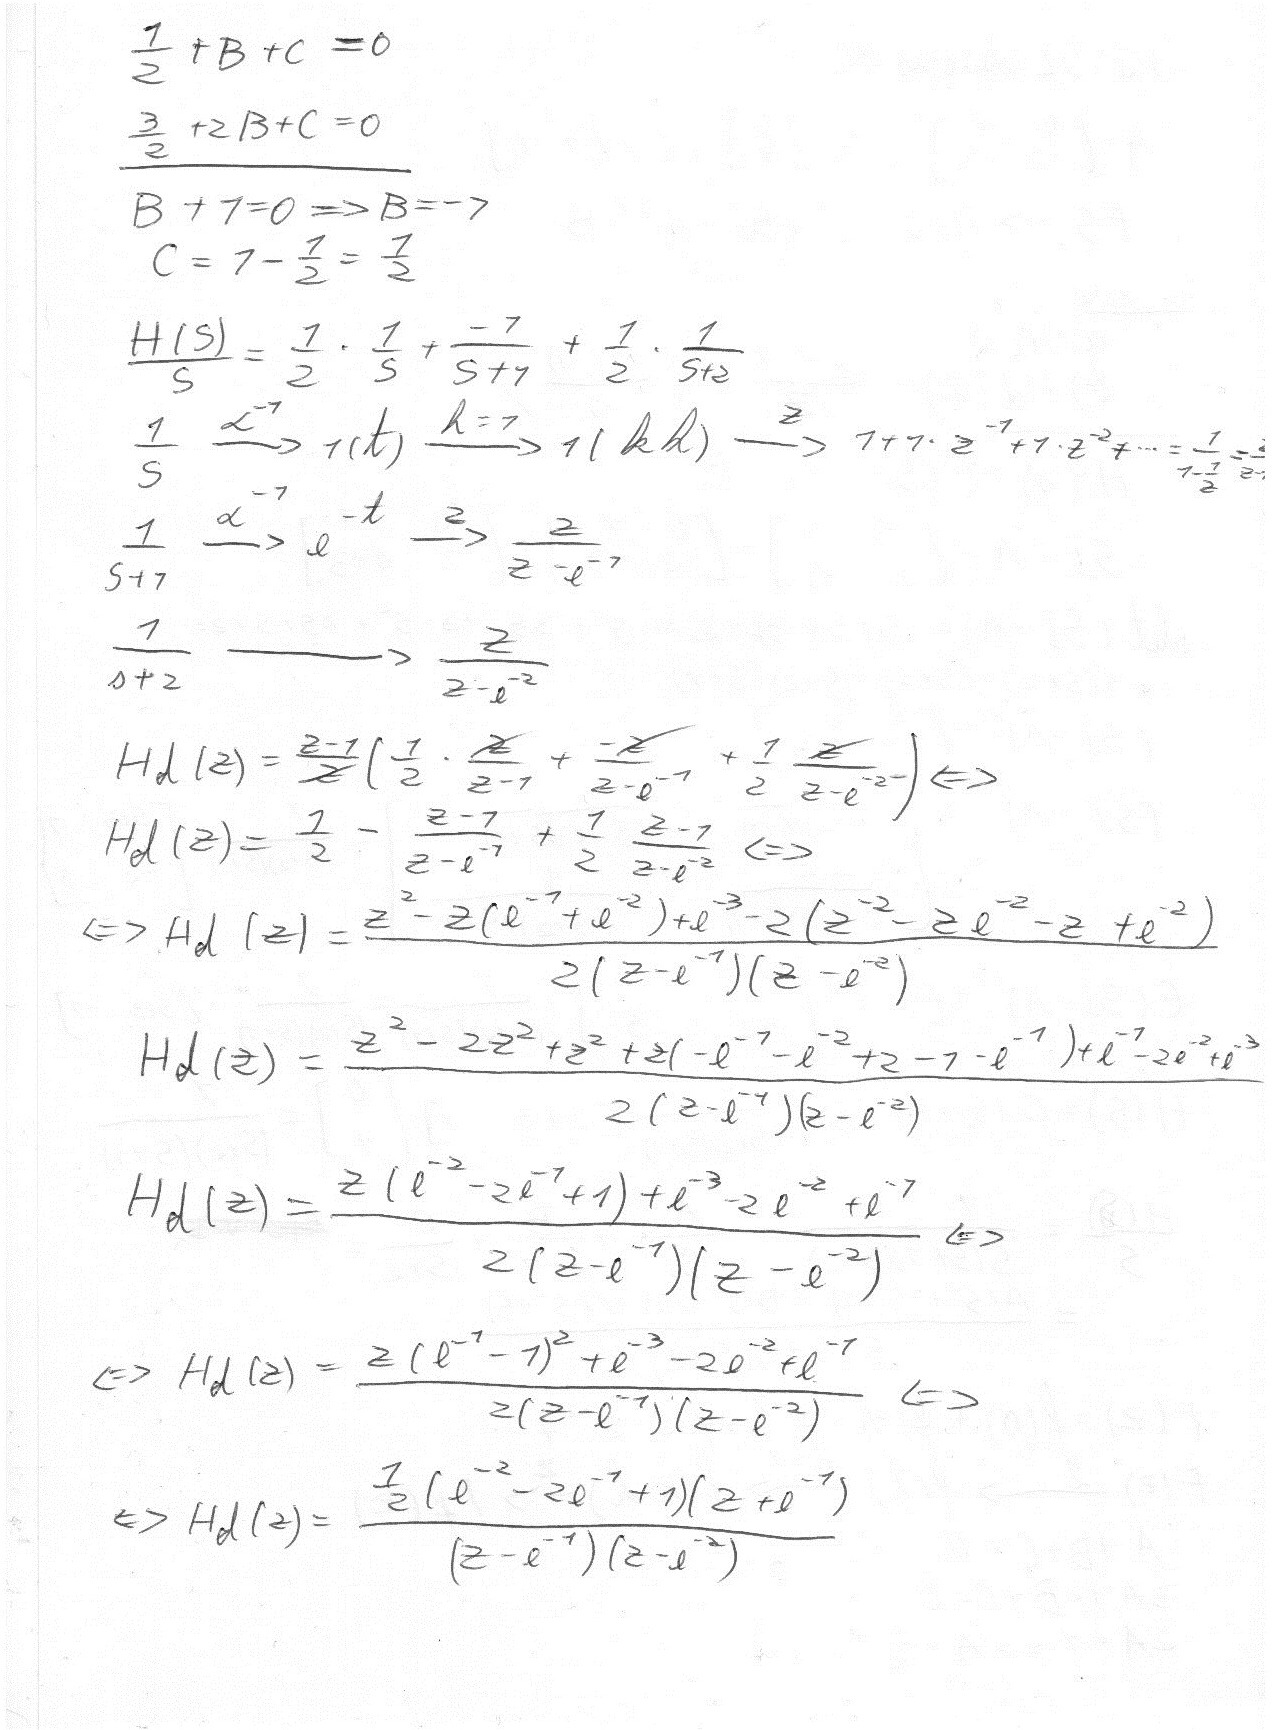 1/2 + B + C = 0
3/2 + 2B + C = 0
B + 1 = 0 => B = -1
C = 1 - 1/2 = 1/2
H(S)/S = 1/2 · 1/S + -1/(S+1) + 1/2 · 1/(S+2)
1/S —L^-1—> 1(t) —h=1—> 1(kh) —z—> 1+1·z^-1+1·z^-2+... = 1/(1-1/z) =
1/(S+1) —L^-1—> e^-t —z—> z/(z-e^-1)
1/(s+2) ——> z/(z-e^-2)
Hd(z) = (z-1)/z (1/2 · z/(z-1) + -z/(z-e^-1) + 1/2 z/(z-e^-2)) <=>
Hd(z) = 1/2 - (z-1)/(z-e^-1) + 1/2 (z-1)/(z-e^-2) <=>
<=> Hd(z) = (z^2 - z(e^-1+e^-2)+e^-3-2(z^-2 - ze^-2 - z + e^-2))/(2(z-e^-1)(z-e^-2))
Hd(z) = (z^2 - 2z^2 + z^2 + z(-e^-1-e^-2+2-1-e^-1)+e^-1-2e^-2+e^-3)/(2(z-e^-1)(z-e^-2))
Hd(z) = (z(e^-2-2e^-1+1)+e^-3-2e^-2+e^-1)/(2(z-e^-1)(z-e^-2)) <=>
<=> Hd(z) = (z(e^-1-1)^2+e^-3-2e^-2+e^-1)/(2(z-e^-1)(z-e^-2)) <=>
<=> Hd(z) = (1/2(e^-2-2e^-1+1)(z+e^-1))/((z-e^-1)(z-e^-2))